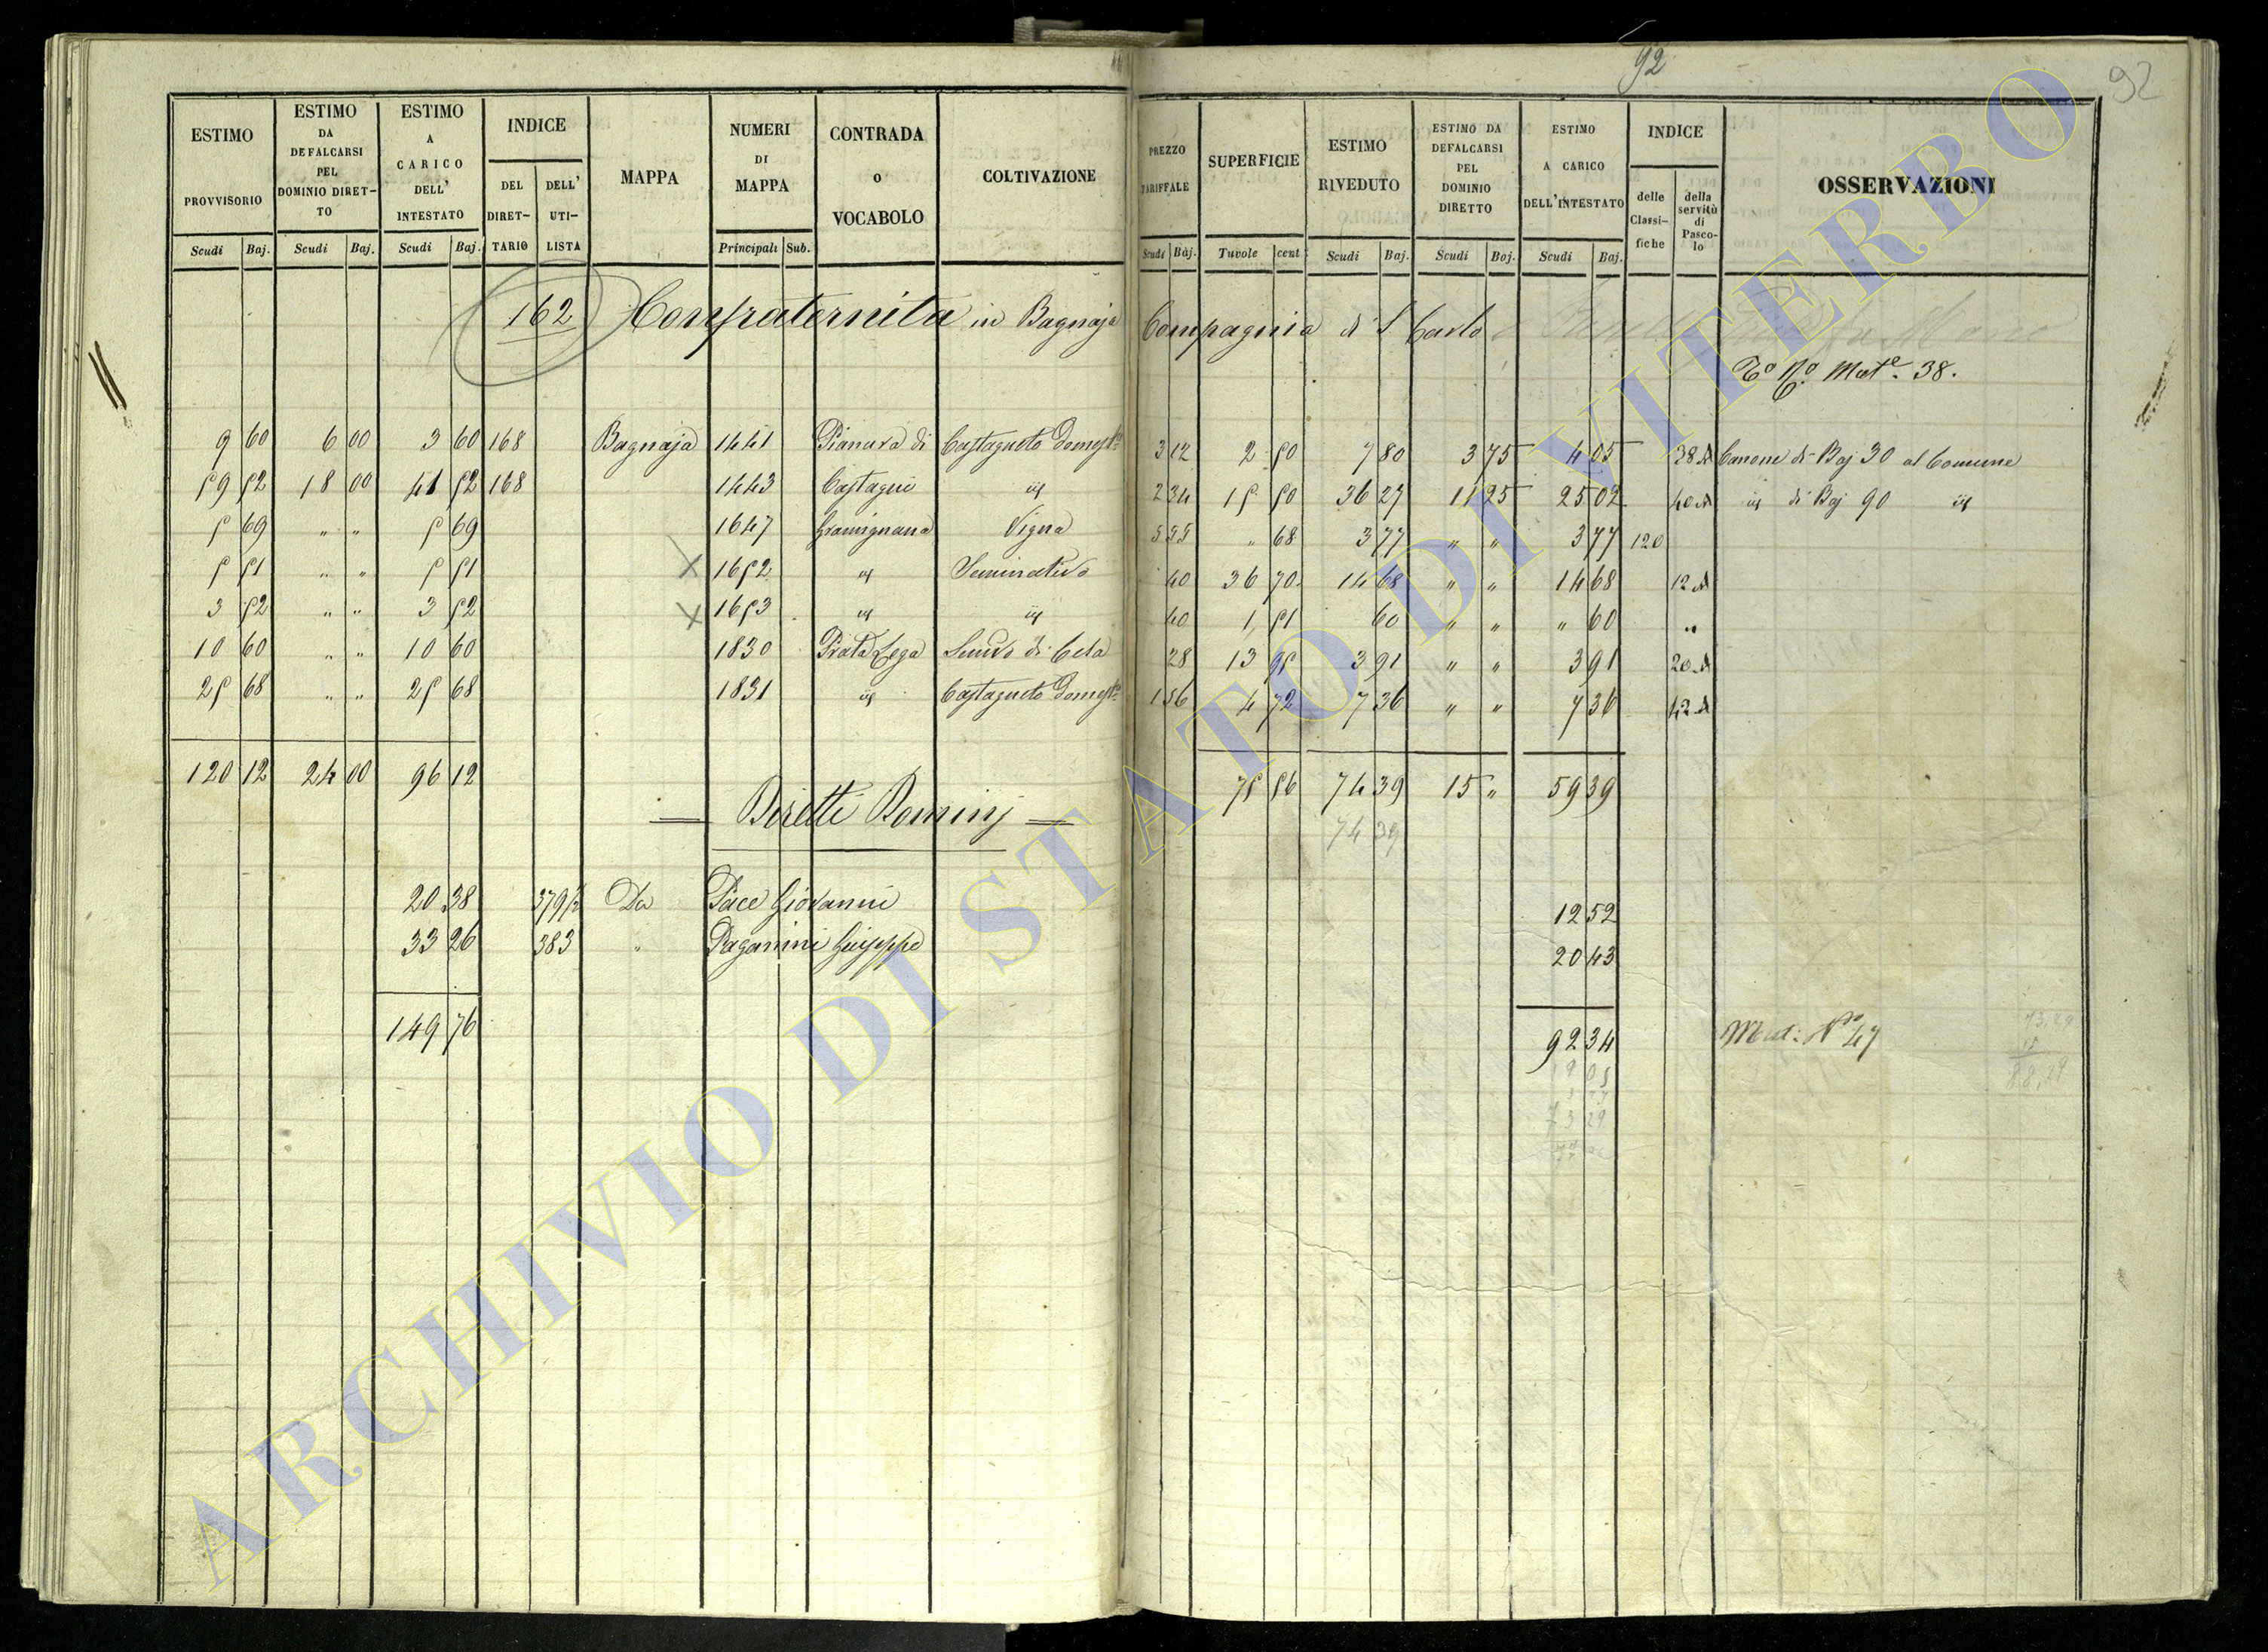 92
92
ESTIMO PROVVISORIO
ESTIMO DA DEFALCARSI PEL DOMINIO DIRET-TO
ESTIMO A CARICO DELL' INTESTATO
INDICE
DEL DIRET-TARIO
DELL' UTI-LISTA
MAPPA
NUMERI DI MAPPA
CONTRADA O VOCABOLO
COLTIVAZIONE
PREZZO TARIFFALE
SUPERFICIE
ESTIMO RIVEDUTO
ESTIMO DA DEFALCARSI PEL DOMINIO DIRETTO
ESTIMO A CARICO DELL'INTESTATO
INDICE
delle Classi-fiche
della servitù di Pasco-lo
OSSERVAZIONI
Scudi Baj. Scudi Baj. Scudi Baj. Principali Sub. Scudi Baj. Tavole cent. Scudi Baj. Scudi Baj. Scudi Baj.
162 Confraternita in Bagnaja Compagnia di S Carlo
Mate. 38.
9 60 6 00 3 60 168 Bagnaja 1441 Pianara di Castagneto Domesto 3 12 2 50 7 80 3 75 4 05 38 A Canone di Baj 30 al Comune
59 52 18 00 41 52 168 1443 Castagni id 2 34 15 50 36 27 11 25 25 02 40 A id di Baj 90 id
5 69 " " 5 69 1647 Gramignana Vigna 5 55 " 68 3 77 " " 3 77 120
5 51 " " 5 51 X 1652 id Seminativo 40 36 70 14 68 " " 14 68 12 A
3 52 " " 3 52 X 1653 id id 40 1 51 60 " " " 60 "
10 60 " " 10 60 1830 Prato Lega Semvo di Cesa 28 13 95 3 91 " " 3 91 20 A
25 68 " " 25 68 1831 id Castagneto Domesto 1 56 4 72 7 36 " " 7 36 42 A
120 12 24 00 96 12 75 56 74 39 15 " 59 39
74 39
Diretti Dominj
20 38 379 1/2 Da Pace Giovanni 12 52
33 26 383 " Paganini Guiseppe 20 43
149 76 92 34 Mat: No 47
73,29
15
88,29
73 29
ARCHIVIO DI STATO DI VITERBO